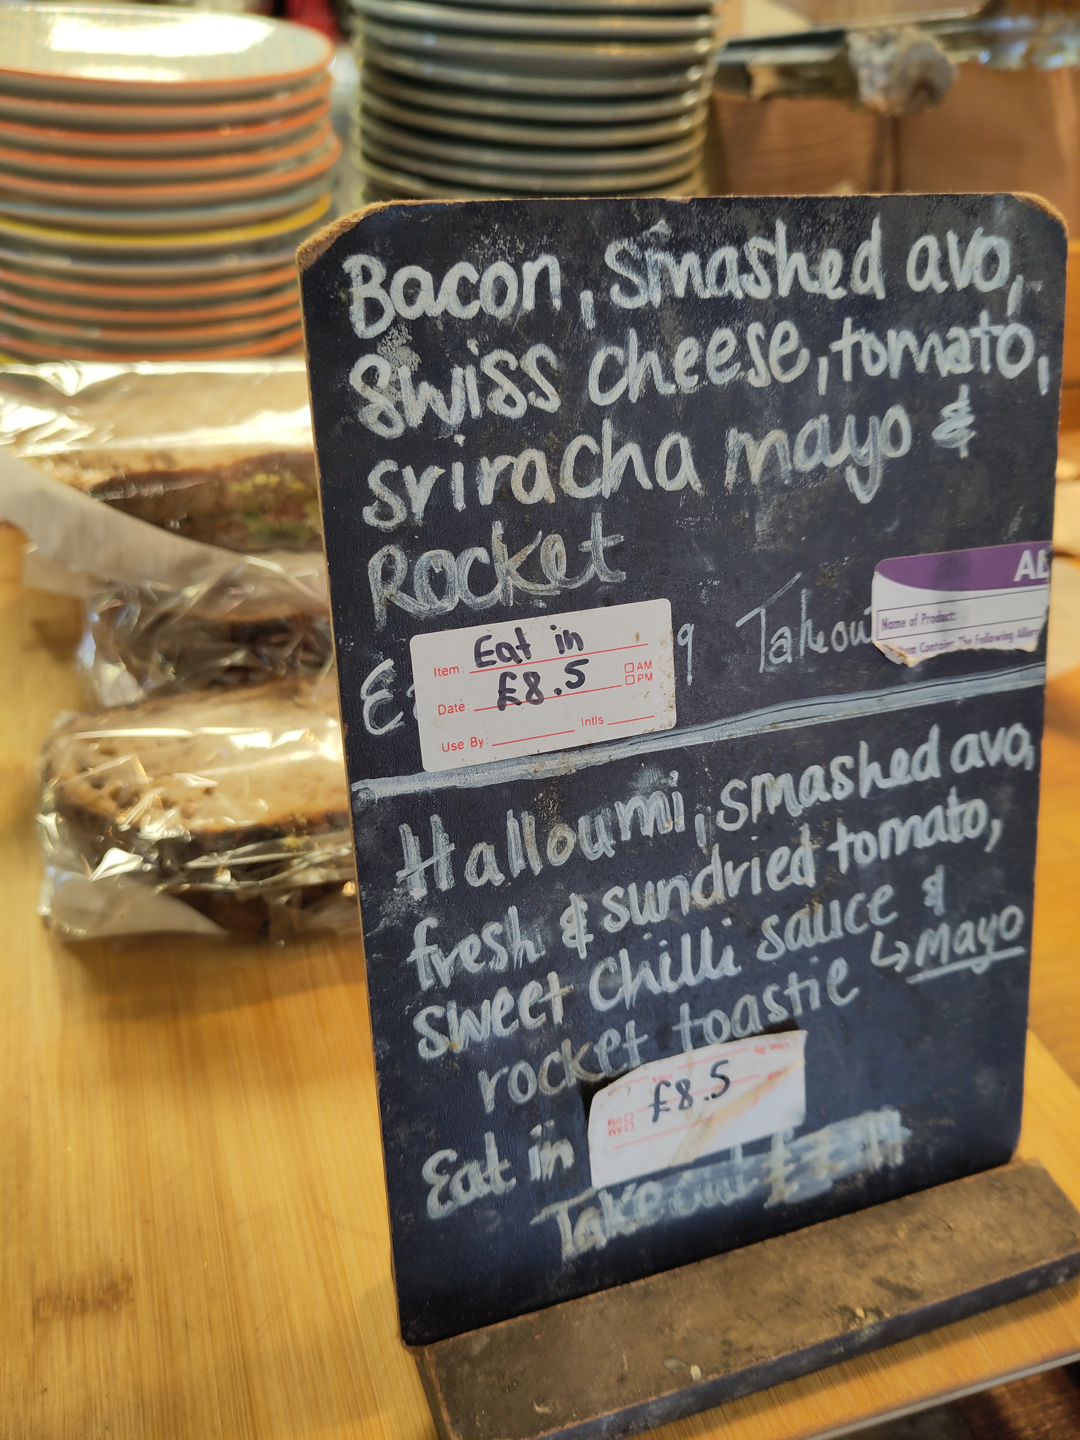 Bacon, smashed avo,
Swiss cheese, tomato,
sriracha mayo &
Rocket
Eat in
Item:
£8.5
AM
PM
Date:
Use By:
Intls
9 Takeou
AL
Name of Product:
Item Contains The Following Aller
Halloumi, smashed avo,
fresh & sundried tomato,
sweet chilli sauce &
↳ Mayo
rocket toastie
£8.5
Eat in
Takeout